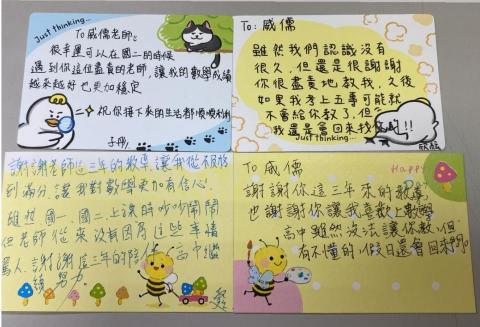 Just thinking...
To 威儒老師:
很幸運可以在國二的時候
遇到你這位盡責的老師,讓我的數學成績
越來越好也更加穩定
祝你接下來的生活都順順利利
To: 威儒
雖然我們認識沒有
很久,但還是很謝謝
你很盡責地教我,之後
如果我考上五專可能就
不會給你教了,但
我還是會回來找你的!!
Just thinking...
謝謝老師這三年的教導,讓我從不及格
到滿分,讓我對數學更加有信心!
雖然國一、國二上課時吵吵鬧鬧
但老師從來沒有因為這些事情
罵人,謝謝這三年的陪伴,高中繼
續努力
Happy
To 威儒
謝謝你這三年來的教導
也謝謝你讓我喜歡上數學
高中雖然沒法讓你教,但
有不懂的,假日還會回來問。